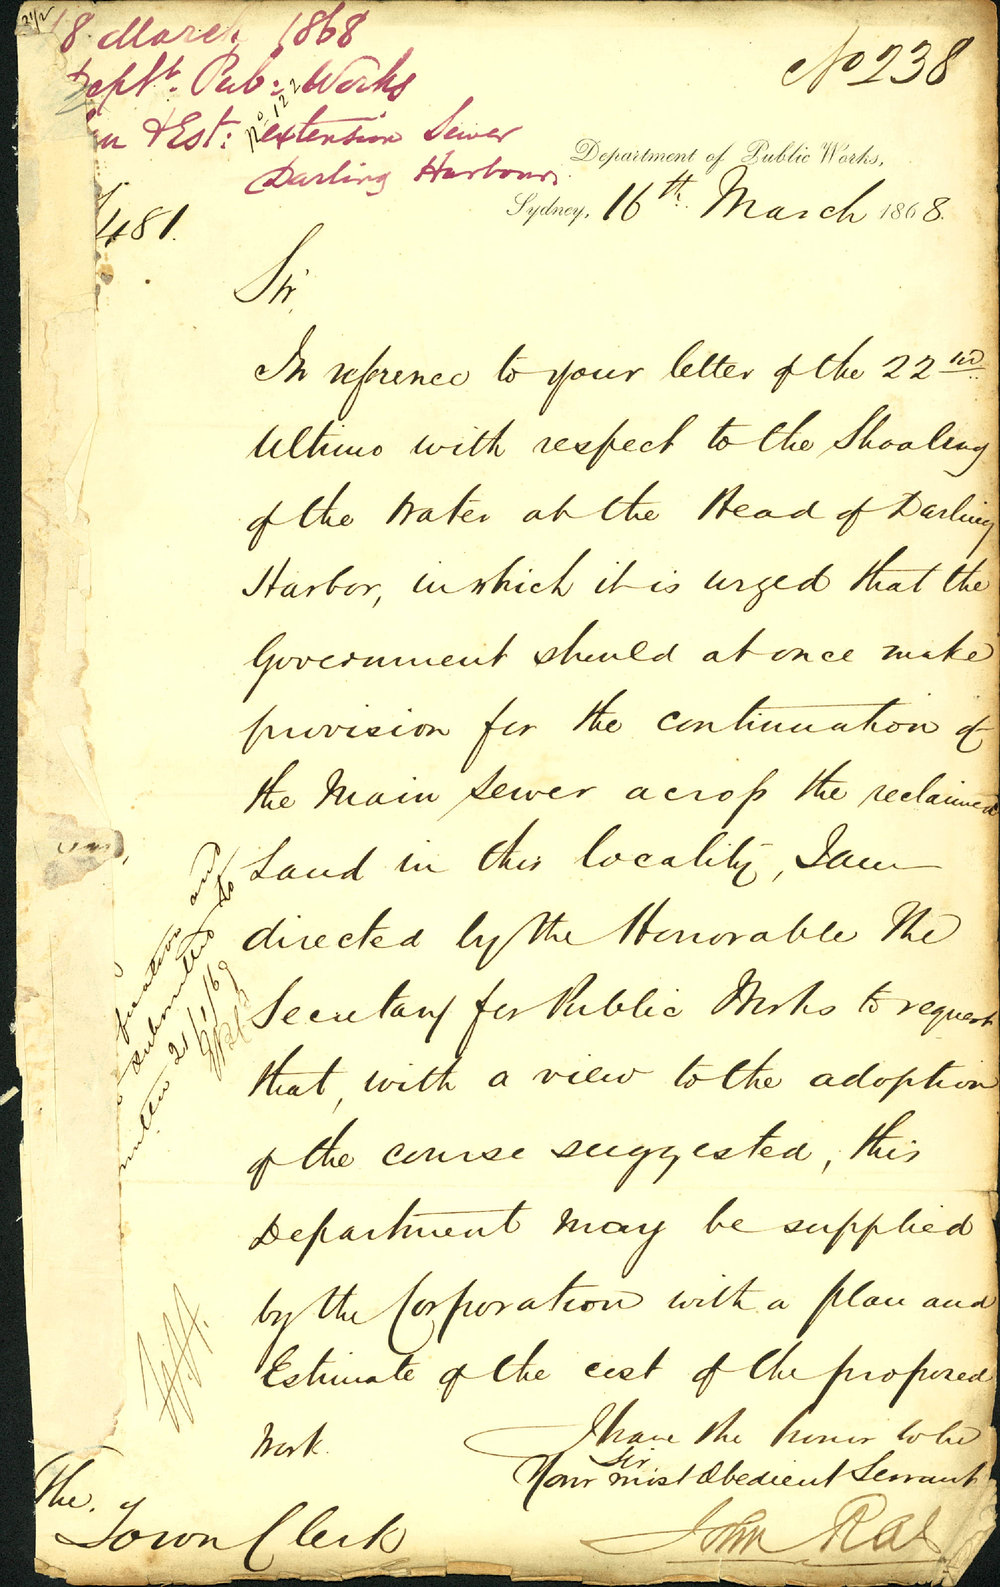 21/2
18 March 1868
Deptt. Pub: Works
& Est: extension Sewer
No 122
Darling Harbour.
No 238
Department of Public Works,
Sydney, 16th March 1868.
481.
Sir,
In reference to your letter of the 22nd
Ultimo with respect to the Shoaling
of the Water at the Head of Darling
Harbor, in which it is urged that the
Government should at once make
provision for the continuation of
the Main Sewer across the reclaimed
Land in this locality, I am
directed by the Honorable The
Secretary for Public Works to request
that, with a view to the adoption
of the course suggested, this
Department may be supplied
by the Corporation with a plan and
Estimate of the cost of the proposed
Work.
I have the honor to be
Sir
Your most Obedient Servant
John Rae
and
submitted to
21/1/69
The
Town Clerk